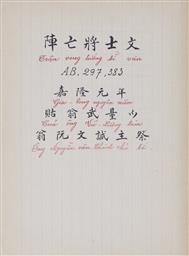 陣亡將士文
Trận vong tướng sĩ văn
AB. 297, 383
嘉隆元年
Gia-long nguyên niên
貼翁武量山
Thiếp ông Vũ-Lượng sơn
翁阮文誠主祭
Ông Nguyễn văn Thành chủ tế